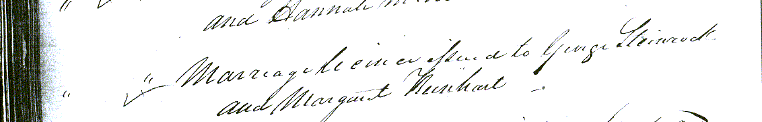 and Hannah
" " Marriage licence issued to George Steinrock
and Margaret Reinhart